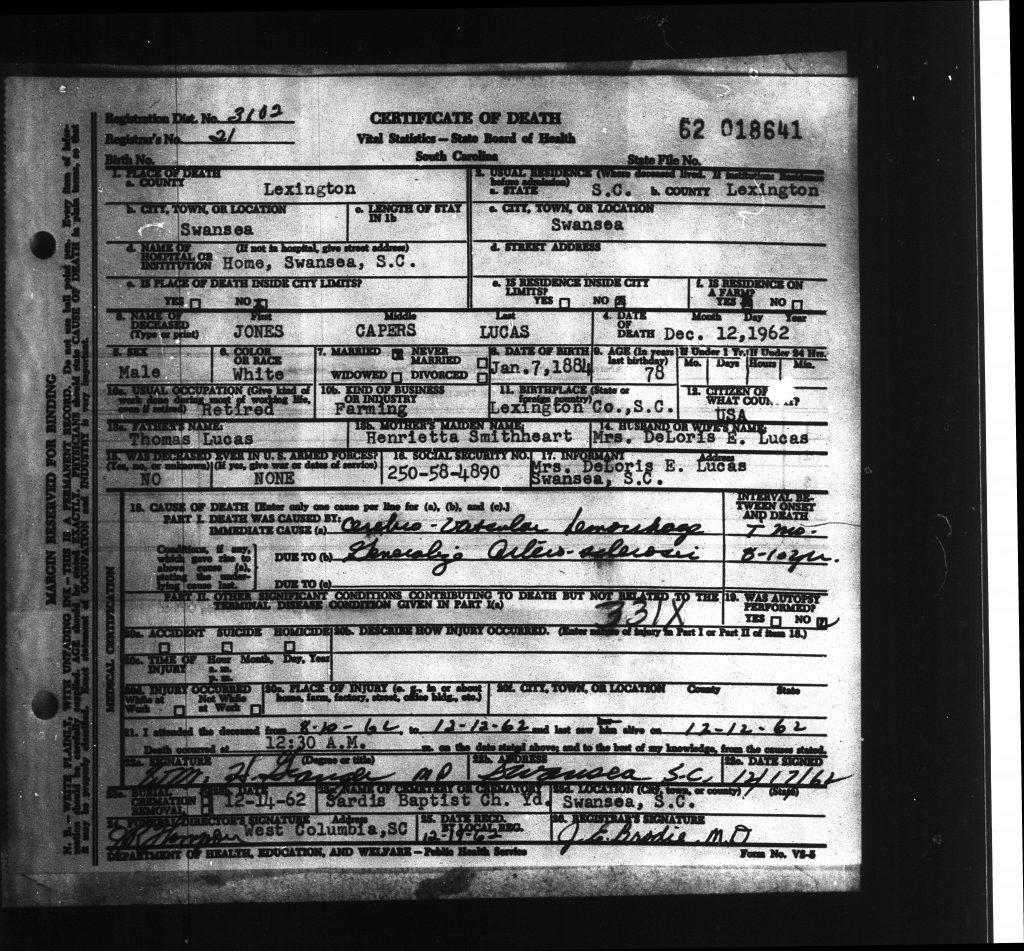 Registration Dist. No. 3102
Registrar's No. 21
Birth No.
CERTIFICATE OF DEATH
Vital Statistics — State Board of Health
South Carolina
62 018641
State File No.
1. PLACE OF DEATH
a. COUNTY Lexington
2. USUAL RESIDENCE (Where deceased lived. If institution: Residence before admission)
a. STATE S.C. b. COUNTY Lexington
b. CITY, TOWN, OR LOCATION
Swansea
c. LENGTH OF STAY IN 1b
c. CITY, TOWN, OR LOCATION
Swansea
d. NAME OF HOSPITAL OR INSTITUTION (If not in hospital, give street address)
Home, Swansea, S.C.
d. STREET ADDRESS
e. IS PLACE OF DEATH INSIDE CITY LIMITS?
YES NO x
e. IS RESIDENCE INSIDE CITY LIMITS?
YES NO x
f. IS RESIDENCE ON A FARM?
YES x NO
3. NAME OF DECEASED (Type or print)
First Middle Last
JONES CAPERS LUCAS
4. DATE OF DEATH Month Day Year
Dec. 12,1962
5. SEX
Male
6. COLOR OR RACE
White
7. MARRIED x NEVER MARRIED
WIDOWED DIVORCED
8. DATE OF BIRTH
Jan.7,1884
9. AGE (In years last birthday)
78
If Under 1 Yr. If Under 24 Hrs.
Mo. Days Hours Min.
10a. USUAL OCCUPATION (Give kind of work done during most of working life, even if retired)
Retired
10b. KIND OF BUSINESS OR INDUSTRY
Farming
11. BIRTHPLACE (State or foreign country)
Lexington Co.,S.C.
12. CITIZEN OF WHAT
USA
13a. FATHER'S NAME
Thomas Lucas
13b. MOTHER'S MAIDEN NAME
Henrietta Smithheart
14. HUSBAND OR WIFE'S NAME
Mrs. DeLoris E. Lucas
15. WAS DECEASED EVER IN U. S. ARMED FORCES?
(Yes, no, or unknown) (If yes, give war or dates of service)
NO NONE
16. SOCIAL SECURITY NO.
250-58-4890
17. INFORMANT Address
Mrs. DeLoris E. Lucas
Swansea, S.C.
18. CAUSE OF DEATH [Enter only one cause per line for (a), (b), and (c).]
INTERVAL BETWEEN ONSET AND DEATH
PART I. DEATH WAS CAUSED BY:
IMMEDIATE CAUSE (a) Cerebro-vascular hemorrhage
mo.
Conditions, if any, which gave rise to above cause (a), stating the underlying cause last.
DUE TO (b) Generalize Arterio-sclerosis 8-10 yr.
DUE TO (c)
PART II. OTHER SIGNIFICANT CONDITIONS CONTRIBUTING TO DEATH BUT NOT RELATED TO THE TERMINAL DISEASE CONDITION GIVEN IN PART I(a)
331X
19. WAS AUTOPSY PERFORMED?
YES NO
20a. ACCIDENT SUICIDE HOMICIDE
20b. DESCRIBE HOW INJURY OCCURRED. (Enter nature of injury in Part I or Part II of item 18.)
20c. TIME OF INJURY Hour Month, Day, Year
a. m.
p. m.
20d. INJURY OCCURRED
While at Work Not While at Work
20e. PLACE OF INJURY (e. g., in or about home, farm, factory, street, office bldg., etc.)
20f. CITY, TOWN, OR LOCATION County State
21. I attended the deceased from 8-10-62, to 12-12-62 and last saw him alive on 12-12-62
Death occurred at 12:30 A.M. m. on the date stated above; and to the best of my knowledge, from the causes stated.
22a. SIGNATURE (Degree or title)
Wm. H. MD
22b. ADDRESS
Swansea S.C.
22c. DATE SIGNED
12/17/62
23a. BURIAL CREMATION REMOVAL
23b. DATE
12-14-62
23c. NAME OF CEMETERY OR CREMATORY
Sardis Baptist Ch. Yd.
23d. LOCATION (City, town, or county) (State)
Swansea, S.C.
24. FUNERAL DIRECTOR'S SIGNATURE Address
West Columbia,SC
25. DATE RECD. BY LOCAL REG.
26. REGISTRAR'S SIGNATURE
J. E. Brodie, M.D
DEPARTMENT OF HEALTH, EDUCATION, AND WELFARE — Public Health Service
Form No. VS-5
MARGIN RESERVED FOR BINDING
N. B. — WRITE PLAINLY, WITH UNFADING INK — THIS IS A PERMANENT RECORD. Do not use ball point pen. Every item of information should be carefully supplied. AGE should be stated EXACTLY. PHYSICIANS should state CAUSE OF DEATH in plain terms, so that it may be properly classified. Exact statement of OCCUPATION and INDUSTRY is very important.
MEDICAL CERTIFICATION